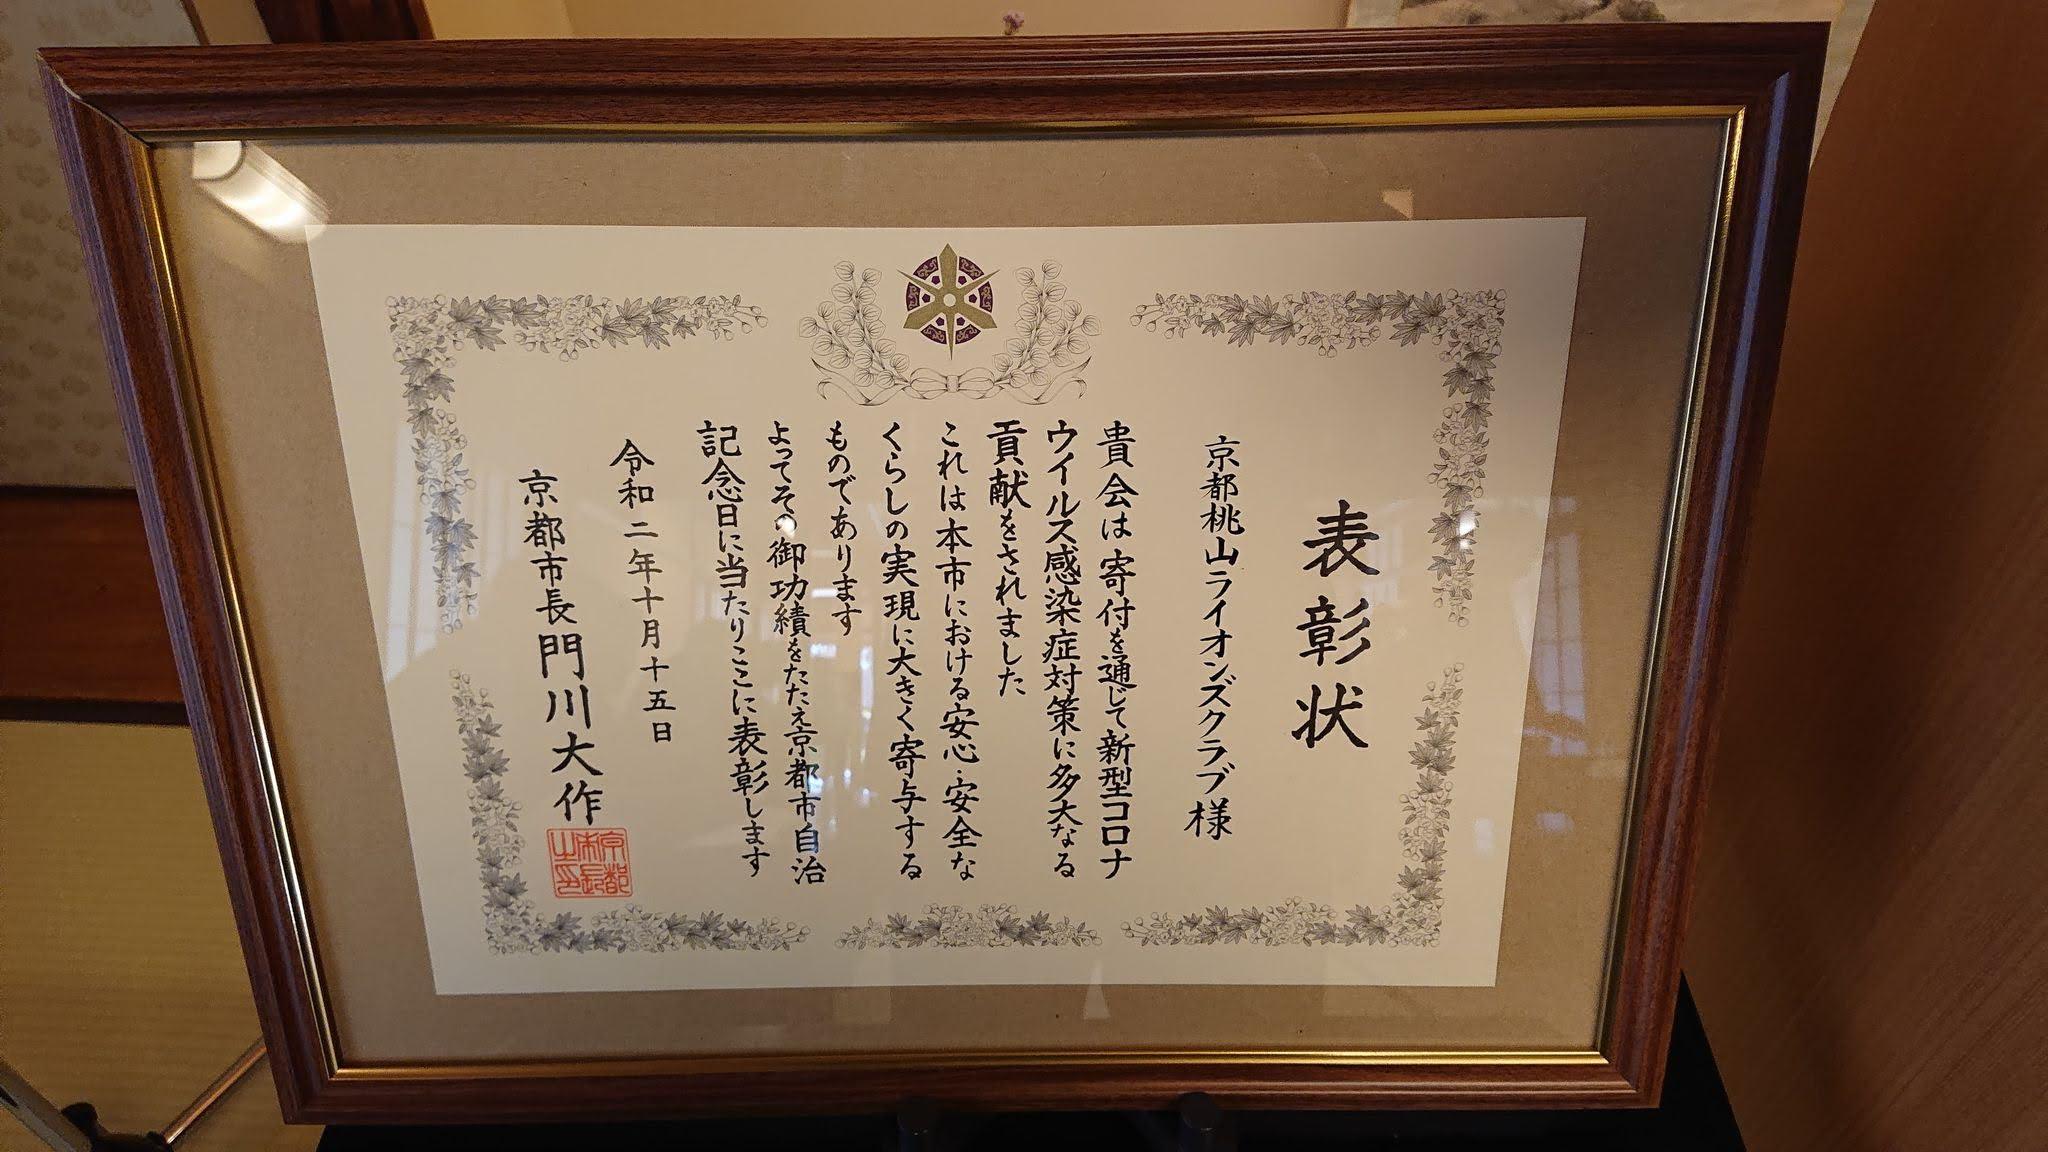 表彰状
京都桃山ライオンズクラブ様
貴会は寄付を通じて新型コロナ
ウイルス感染症対策に多大なる
貢献をされました
これは本市における安心・安全な
くらしの実現に大きく寄与する
ものであります
よってその御功績をたたえ京都市自治
記念日に当たりここに表彰します
令和二年十月十五日
京都市長門川大作
京都
市長
之印